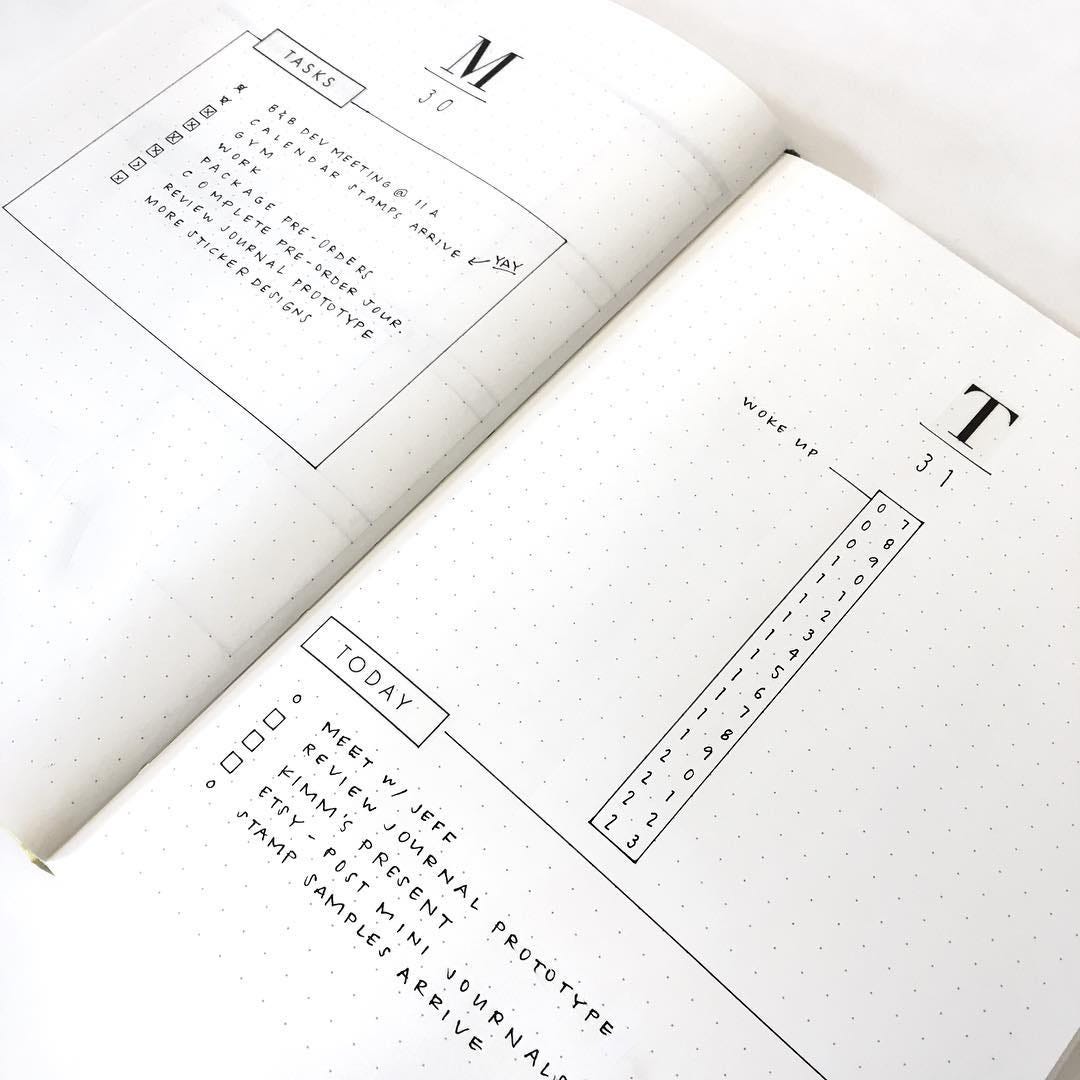 M
30
TASKS
B&B DEV MEETING @ 11A
CALENDAR STAMPS ARRIVE ↙ YAY
GYM
WORK
PACKAGE PRE-ORDERS
COMPLETE PRE-ORDER JOUR.
REVIEW JOURNAL PROTOTYPE
MORE STICKER DESIGNS
T
31
WOKE UP
07
08
09
10
11
12
13
14
15
16
17
18
19
20
21
22
23
TODAY
MEET W/ JEFF
REVIEW JOURNAL PROTOTYPE
KIMM'S PRESENT
ETSY - POST MINI JOURNALS
STAMP SAMPLES ARRIVE